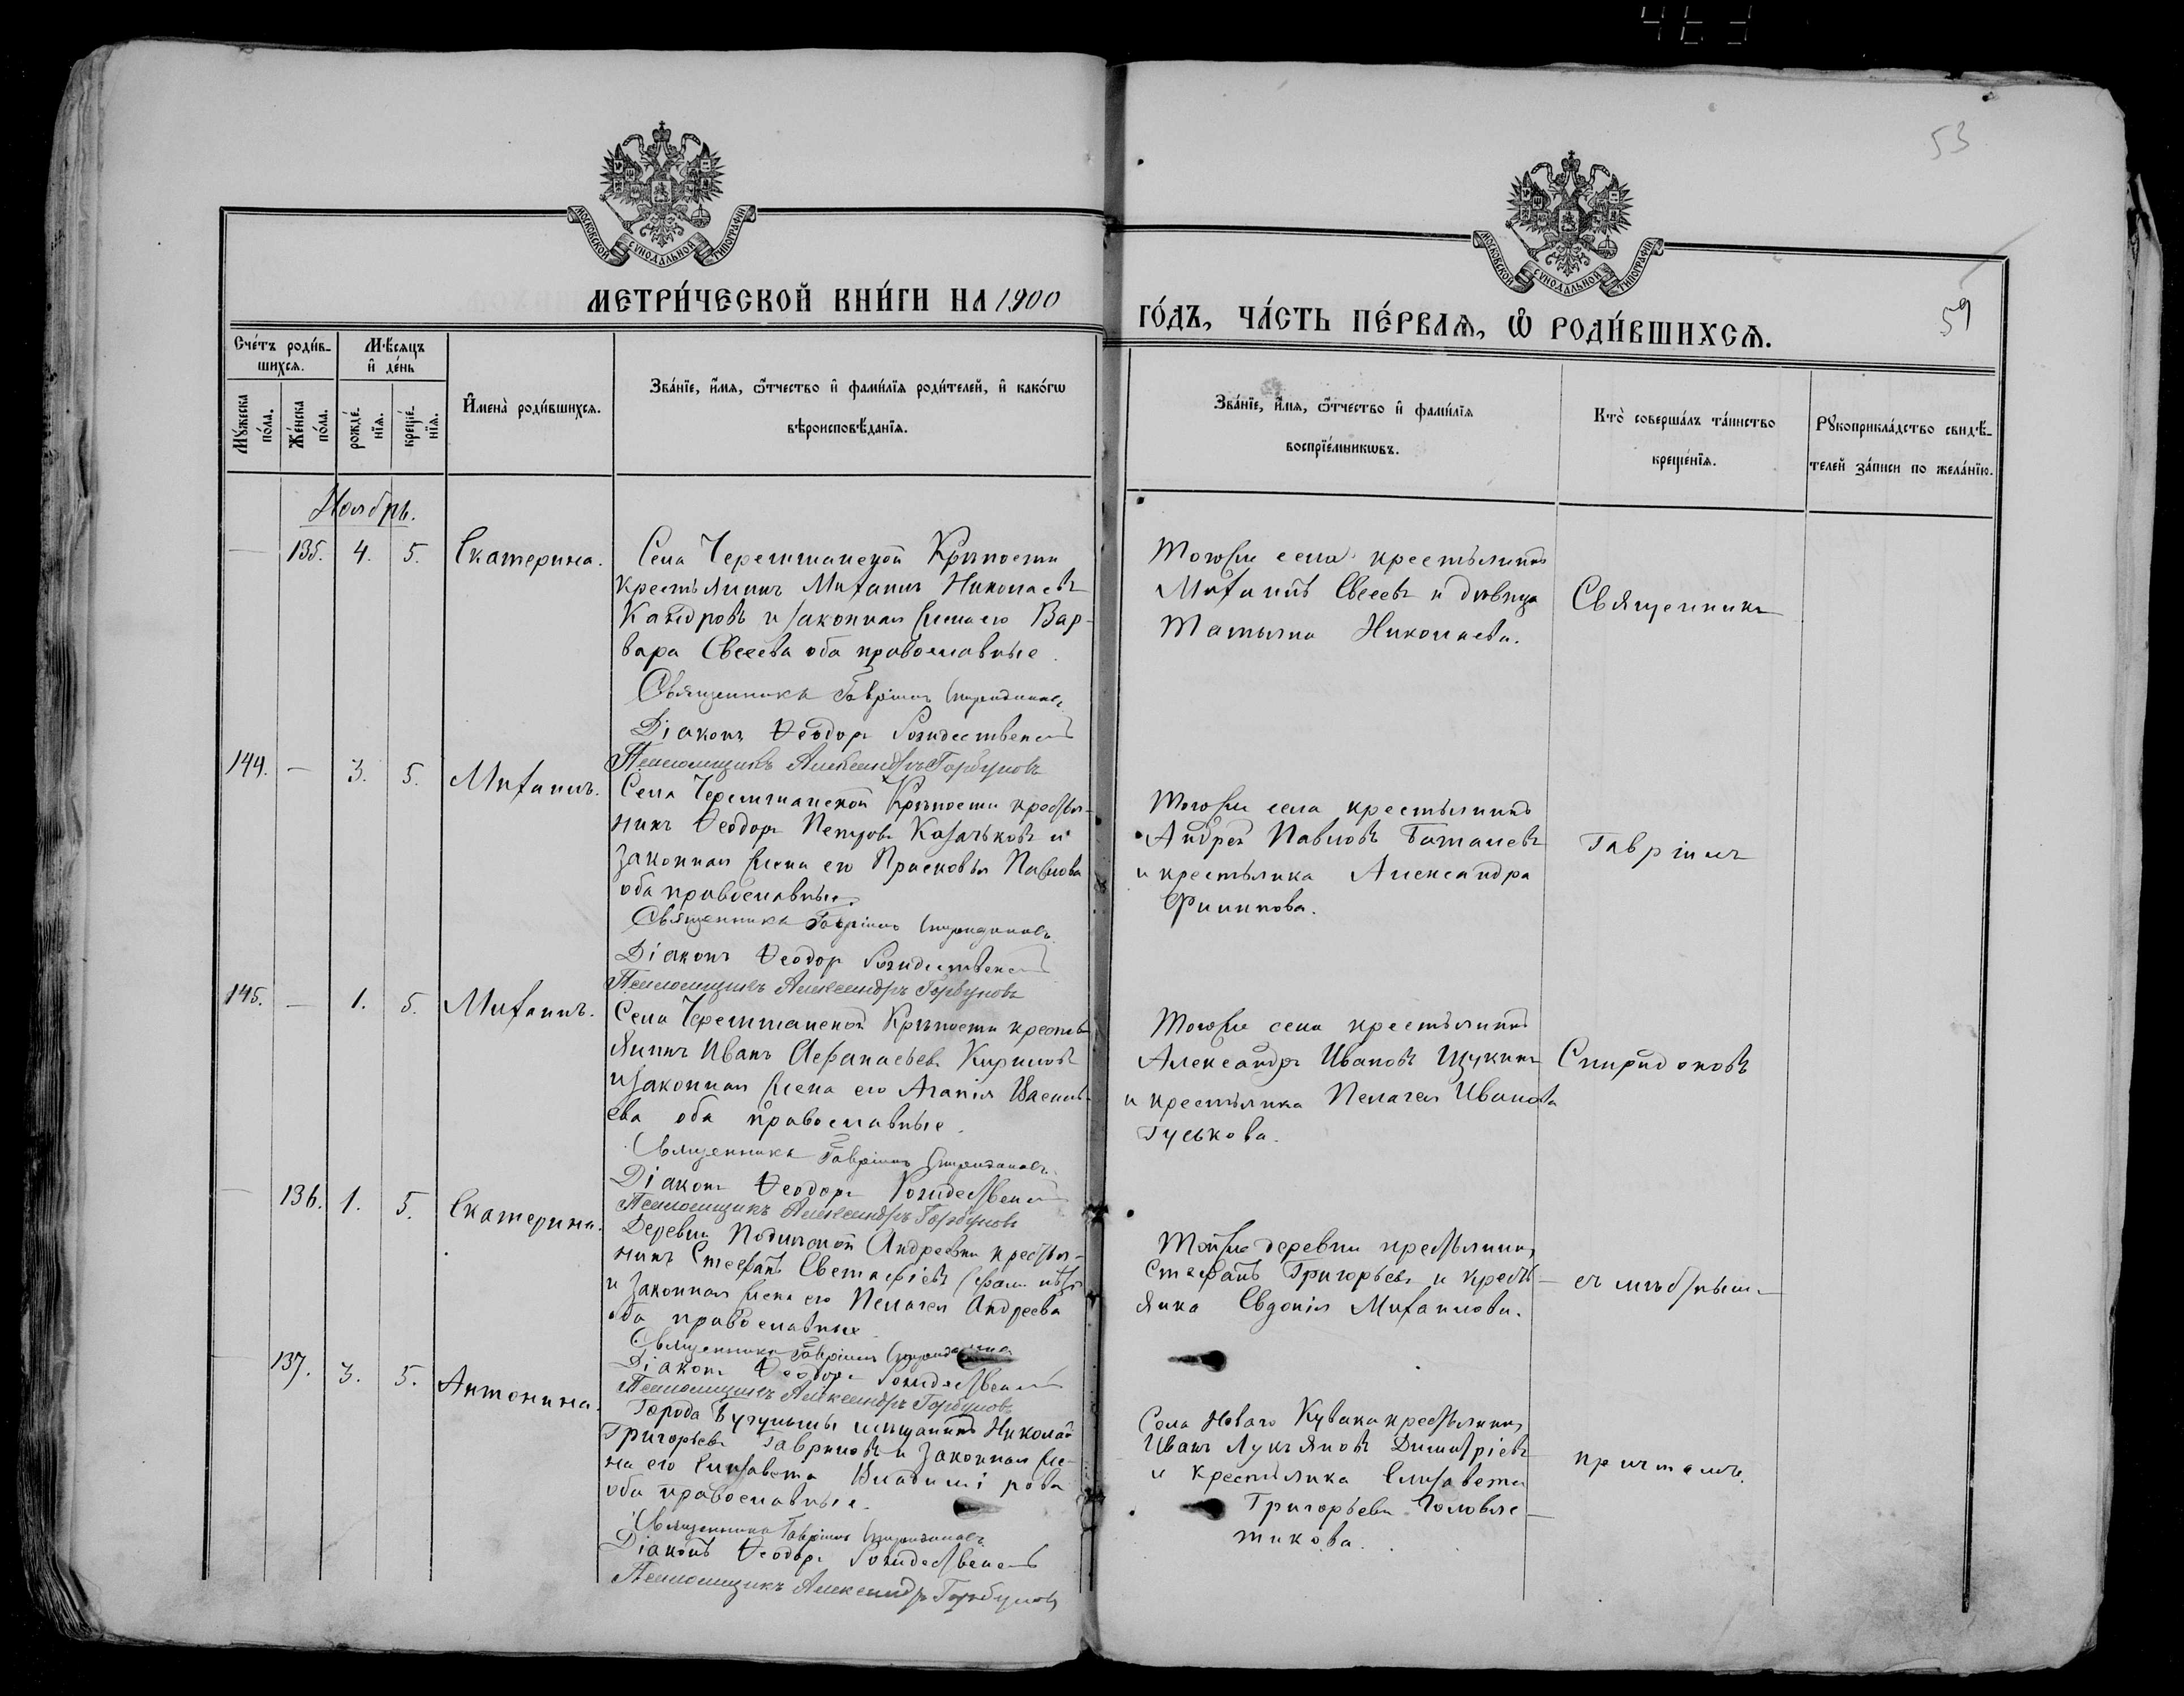 53
59
МОСКОВСКОЙ СѴНОДАЛЬНОЙ ТИПОГРАФІИ
МОСКОВСКОЙ СѴНОДАЛЬНОЙ ТИПОГРАФІИ
МЕТРИ́ЧЕСКОЙ КНИ́ГИ НА 1900
ГО́ДЪ, ЧА́СТЬ ПЕ́РВАѦ, Ѡ҆ РОДИ́ВШИХСѦ.
Сче́тъ роди́в-
шихсѧ.
Мꙋ́жеска
по́ла.
Же́нска
по́ла.
Мѣ́сяцъ
и҆ де́нь
рожде́-
нїѧ.
креще́-
нїѧ.
И҆мена̀ роди́вшихсѧ.
Зва́нїе, и҆́мѧ, ѻ҆́тчество и҆ фами́лїѧ роди́телей, и҆ како́гѡ
вѣроисповѣ́данїѧ.
Зва́нїе, и҆́мѧ, ѻ҆́тчество и҆ фами́лїѧ
воспрїе́мникѡвъ.
Кто̀ соверша́лъ та́инство
креще́нїѧ.
Рꙋкоприкла́дство свидѣ́-
телей за́писи по жела́нїю.
Ноябрь.
— 135. 4. 5. Екатерина.
Села Черемшанской Крѣпости
крестьянинъ Михаилъ Николаевъ
и законная жена его Вар-
вара Евсеева оба православные.
Священникъ Гавріилъ Спиридоновъ
Діаконъ Ѳеодоръ Рождественскій
Псаломщикъ Александръ Горбуновъ
Тогоже села крестьянинъ
Михаилъ Евсеевъ и дѣвица
Татьяна Николаева.
Священникъ
144. — 3. 5. Михаилъ.
Села Черемшанской Крѣпости крестья-
нинъ Ѳеодоръ Петровъ Казачьковъ и
законная жена его Прасковья Павлова
оба православные.
Священникъ Гавріилъ Спиридоновъ
Діаконъ Ѳеодоръ Рождественскій
Псаломщикъ Александръ Горбуновъ
Тогоже села крестьянинъ
Андрей Павловъ
и крестьянка Александра
Филипова.
Гавріилъ
145. — 1. 5. Михаилъ.
Села Черемшанской Крѣпости кресть
янинъ Иванъ Афанасьевъ Кириловъ
и законная жена его Агапія Василь-
ева оба православные.
Священникъ Гавріилъ Спиридоновъ
Діаконъ Ѳеодоръ Рождественскій
Псаломщикъ Александръ Горбуновъ
Тогоже села крестьянинъ
Александръ Ивановъ Щукинъ
и крестьянка Пелагея Иванова
Гуськова.
Спиридоновъ
— 136. 1. 5. Екатерина.
Деревни Подлесной Андреевки крестья-
нинъ Стефанъ Евстафіевъ (фам. нѣтъ)
и законная жена его Пелагея Андреева
оба православные
Священникъ Гавріилъ Спиридоновъ
Діаконъ Ѳеодоръ Рождественскій
Псаломщикъ Александръ Горбуновъ
Тойже деревни крестьянинъ
Стефанъ Григорьевъ и кресть-
янка Евдокія Михаилова.
съ мѣстнымъ
— 137. 3. 5. Антонина.
Города Бугульмы мѣщанинъ Николай
Григорьевъ Гавриловъ и законная же-
на его Елизавета Владимірова
оба православные.
Священникъ Гавріилъ Спиридоновъ
Діаконъ Ѳеодоръ Рождественскій
Псаломщикъ Александръ Горбуновъ
Села Новаго Кувака крестьянинъ
Иванъ Лукъяновъ Димитріевъ
и крестьянка Елизавета
Григорьева Головле-
тикова.
причтомъ.